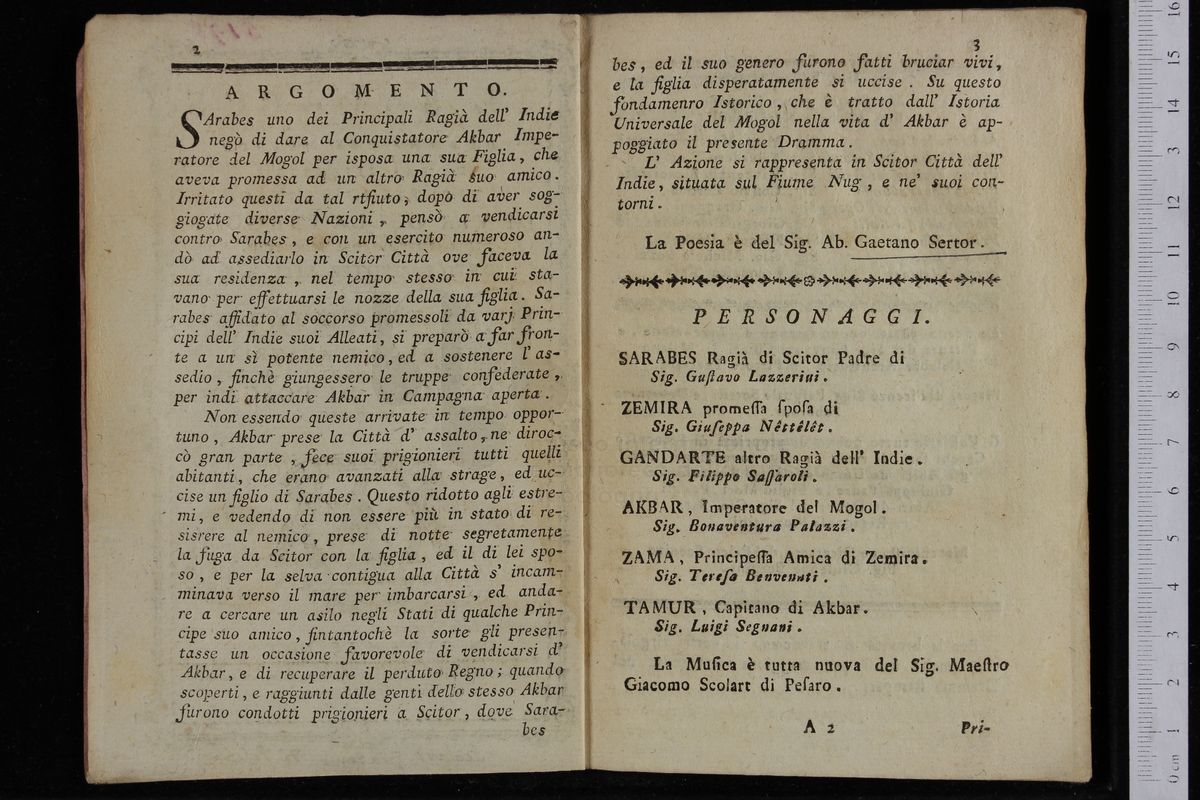 2
ARGOMENTO.
SArabes uno dei Principali Ragià dell' Indie
negò di dare al Conquistatore Akbar Impe-
ratore del Mogol per isposa una sua Figlia, che
aveva promessa ad un altro Ragià suo amico.
Irritato questi da tal rtfiuto, dopo di aver sog-
giogate diverse Nazioni, pensò a vendicarsi
contro Sarabes, e con un esercito numeroso an-
dò ad assediarlo in Scitor Città ove faceva la
sua residenza, nel tempo stesso in cui sta-
vano per effettuarsi le nozze della sua figlia. Sa-
rabes affidato al soccorso promessoli da varj Prin-
cipi dell' Indie suoi Alleati, si preparò a far fron-
te a un sì potente nemico, ed a sostenere l' as-
sedio, finchè giungessero le truppe confederate,
per indi attaccare Akbar in Campagna aperta.
Non essendo queste arrivate in tempo oppor-
tuno, Akbar prese la Città d' assalto, ne diroc-
cò gran parte, fece suoi prigionieri tutti quelli
abitanti, che erano avanzati alla strage, ed uc-
cise un figlio di Sarabes. Questo ridotto agli estre-
mi, e vedendo di non essere più in stato di re-
sisrere al nemico, prese di notte segretamente
la fuga da Scitor con la figlia, ed il di lei spo-
so, e per la selva contigua alla Città s' incam-
minava verso il mare per imbarcarsi, ed anda-
re a cercare un asilo negli Stati di qualche Prin-
cipe suo amico, fintantochè la sorte gli presen-
tasse un occasione favorevole di vendicarsi d'
Akbar, e di recuperare il perduto Regno; quando
scoperti, e raggiunti dalle genti dello stesso Akbar
furono condotti prigionieri a Scitor, dove Sara-
bes
3
bes, ed il suo genero furono fatti bruciar vivi,
e la figlia disperatamente si uccise. Su questo
fondamenro Istorico, che è tratto dall' Istoria
Universale del Mogol nella vita d' Akbar è ap-
poggiato il presente Dramma.
L' Azione si rappresenta in Scitor Città dell'
Indie, situata sul Fiume Nug, e ne' suoi con-
torni.
La Poesia è del Sig. Ab. Gaetano Sertor.
PERSONAGGI.
SARABES Ragià di Scitor Padre di
Sig. Guſtavo Lazzerini.
ZEMIRA promeſſa ſpoſa di
Sig. Giuſeppa Nêttêlêt.
GANDARTE altro Ragià dell' Indie.
Sig. Filippo Saſſaroli.
AKBAR, Imperatore del Mogol.
Sig. Bonaventura Palazzi.
ZAMA, Principeſſa Amica di Zemira.
Sig. Tereſa Benvenuti.
TAMUR, Capitano di Akbar.
Sig. Luigi Segnani.
La Muſica è tutta nuova del Sig. Maeſtro
Giacomo Scolart di Peſaro.
A 2
Pri-
0 cm 1 2 3 4 5 6 7 8 9 10 11 12 13 14 15 16